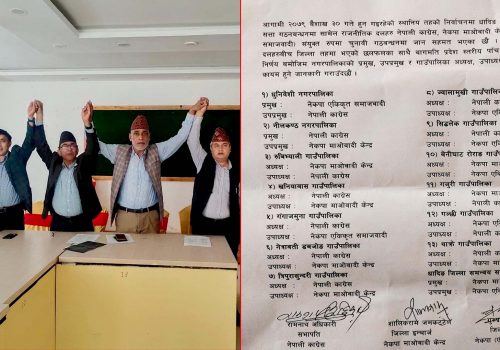 आगामी २०७९ बैशाख ३० गते हुन गइरहेको स्थानिय तहको निर्वाचनमा धादिङ
सत्ता गठबन्धनमा सामेल राजनीतिक दलहरु नेपाली काग्रेस, नेकपा माओवादी केन्द्र
समाजवादी) संयुक्त रुपमा चुनावी गठबन्धनमा जान सहमत भएका छौं ।
दलहरुबीच जिल्ला तहमा भएको छलफलका साथै बागमति प्रदेश स्तरीय
निर्णय समोजिम नगरपालिकाको प्रमुख, उपप्रमुख र गाउँपालिका अध्यक्ष, उपाध्यक्ष
कायम हुने जानकारी गराउँदछौं ।
१) धुनिवेशी नगरपालिका
प्रमुख : नेकपा एकिकृत समाजवादी
उपप्रमुख : नेपाली काग्रेस
२) नीलकण्ठ नगरपालिका
प्रमुख : नेपाली काग्रेस
उपप्रमुख : नेकपा माओवादी केन्द्र
३) रुबिभ्याली गाउँपालिका
अध्यक्ष : नेकपा माओवादी केन्द्र
उपाध्यक्ष : नेपाली काग्रेस
४) खनियाबास गाउँपालिका
अध्यक्ष : नेपाली काग्रेस
उपाध्यक्ष : नेकपा माओवादी केन्द्र
५) गंगाजमुना गाउँपालिका
अध्यक्ष : नेपाली काग्रेस
उपाध्यक्ष : नेकपा एकिकृत समाजवादी
६) नेत्रावती डबजोङ गाउँपालिका
अध्यक्ष : नेपाली काग्रेस
उपाध्यक्ष : नेकपा माओवादी केन्द्र
७) त्रिपुरासुन्दरी गाउँपालिका
अध्यक्ष : नेकपा माओवादी केन्द्र
उपाध्यक्ष : नेपाली काग्रेस
८) ज्वालामुखी गाउँपालिका
अध्यक्ष : नेपाली
उपाध्यक्ष : नेकपा
९) सिद्धलेक गाउँपालिका
अध्यक्ष : नेकपा
उपाध्यक्ष : नेपाली
१०) बेनीघाट रोराङ गाउँ
अध्यक्ष : नेकपा
उपाध्यक्ष : नेपाली
११) गजुरी गाउँपालिका
अध्यक्ष : नेकपा
उपाध्यक्ष : नेपाली
१२) गल्छी गाउँपालिका
अध्यक्ष : नेपाली
उपाध्यक्ष : नेकपा
१३) थाक्रे गाउँपालिका
अध्यक्ष : नेपाली
उपाध्यक्ष : नेकपा
धादिङ जिल्ला समन्वय
प्रमुख : नेकपा
उपप्रमुख : नेपाली
रामनाथ अधिकारी
सभापति
नेपाली काग्रेस
शालिकराम जमकट्टेल
जिल्ला इन्चार्ज
नेकपा माओवादी केन्द्र